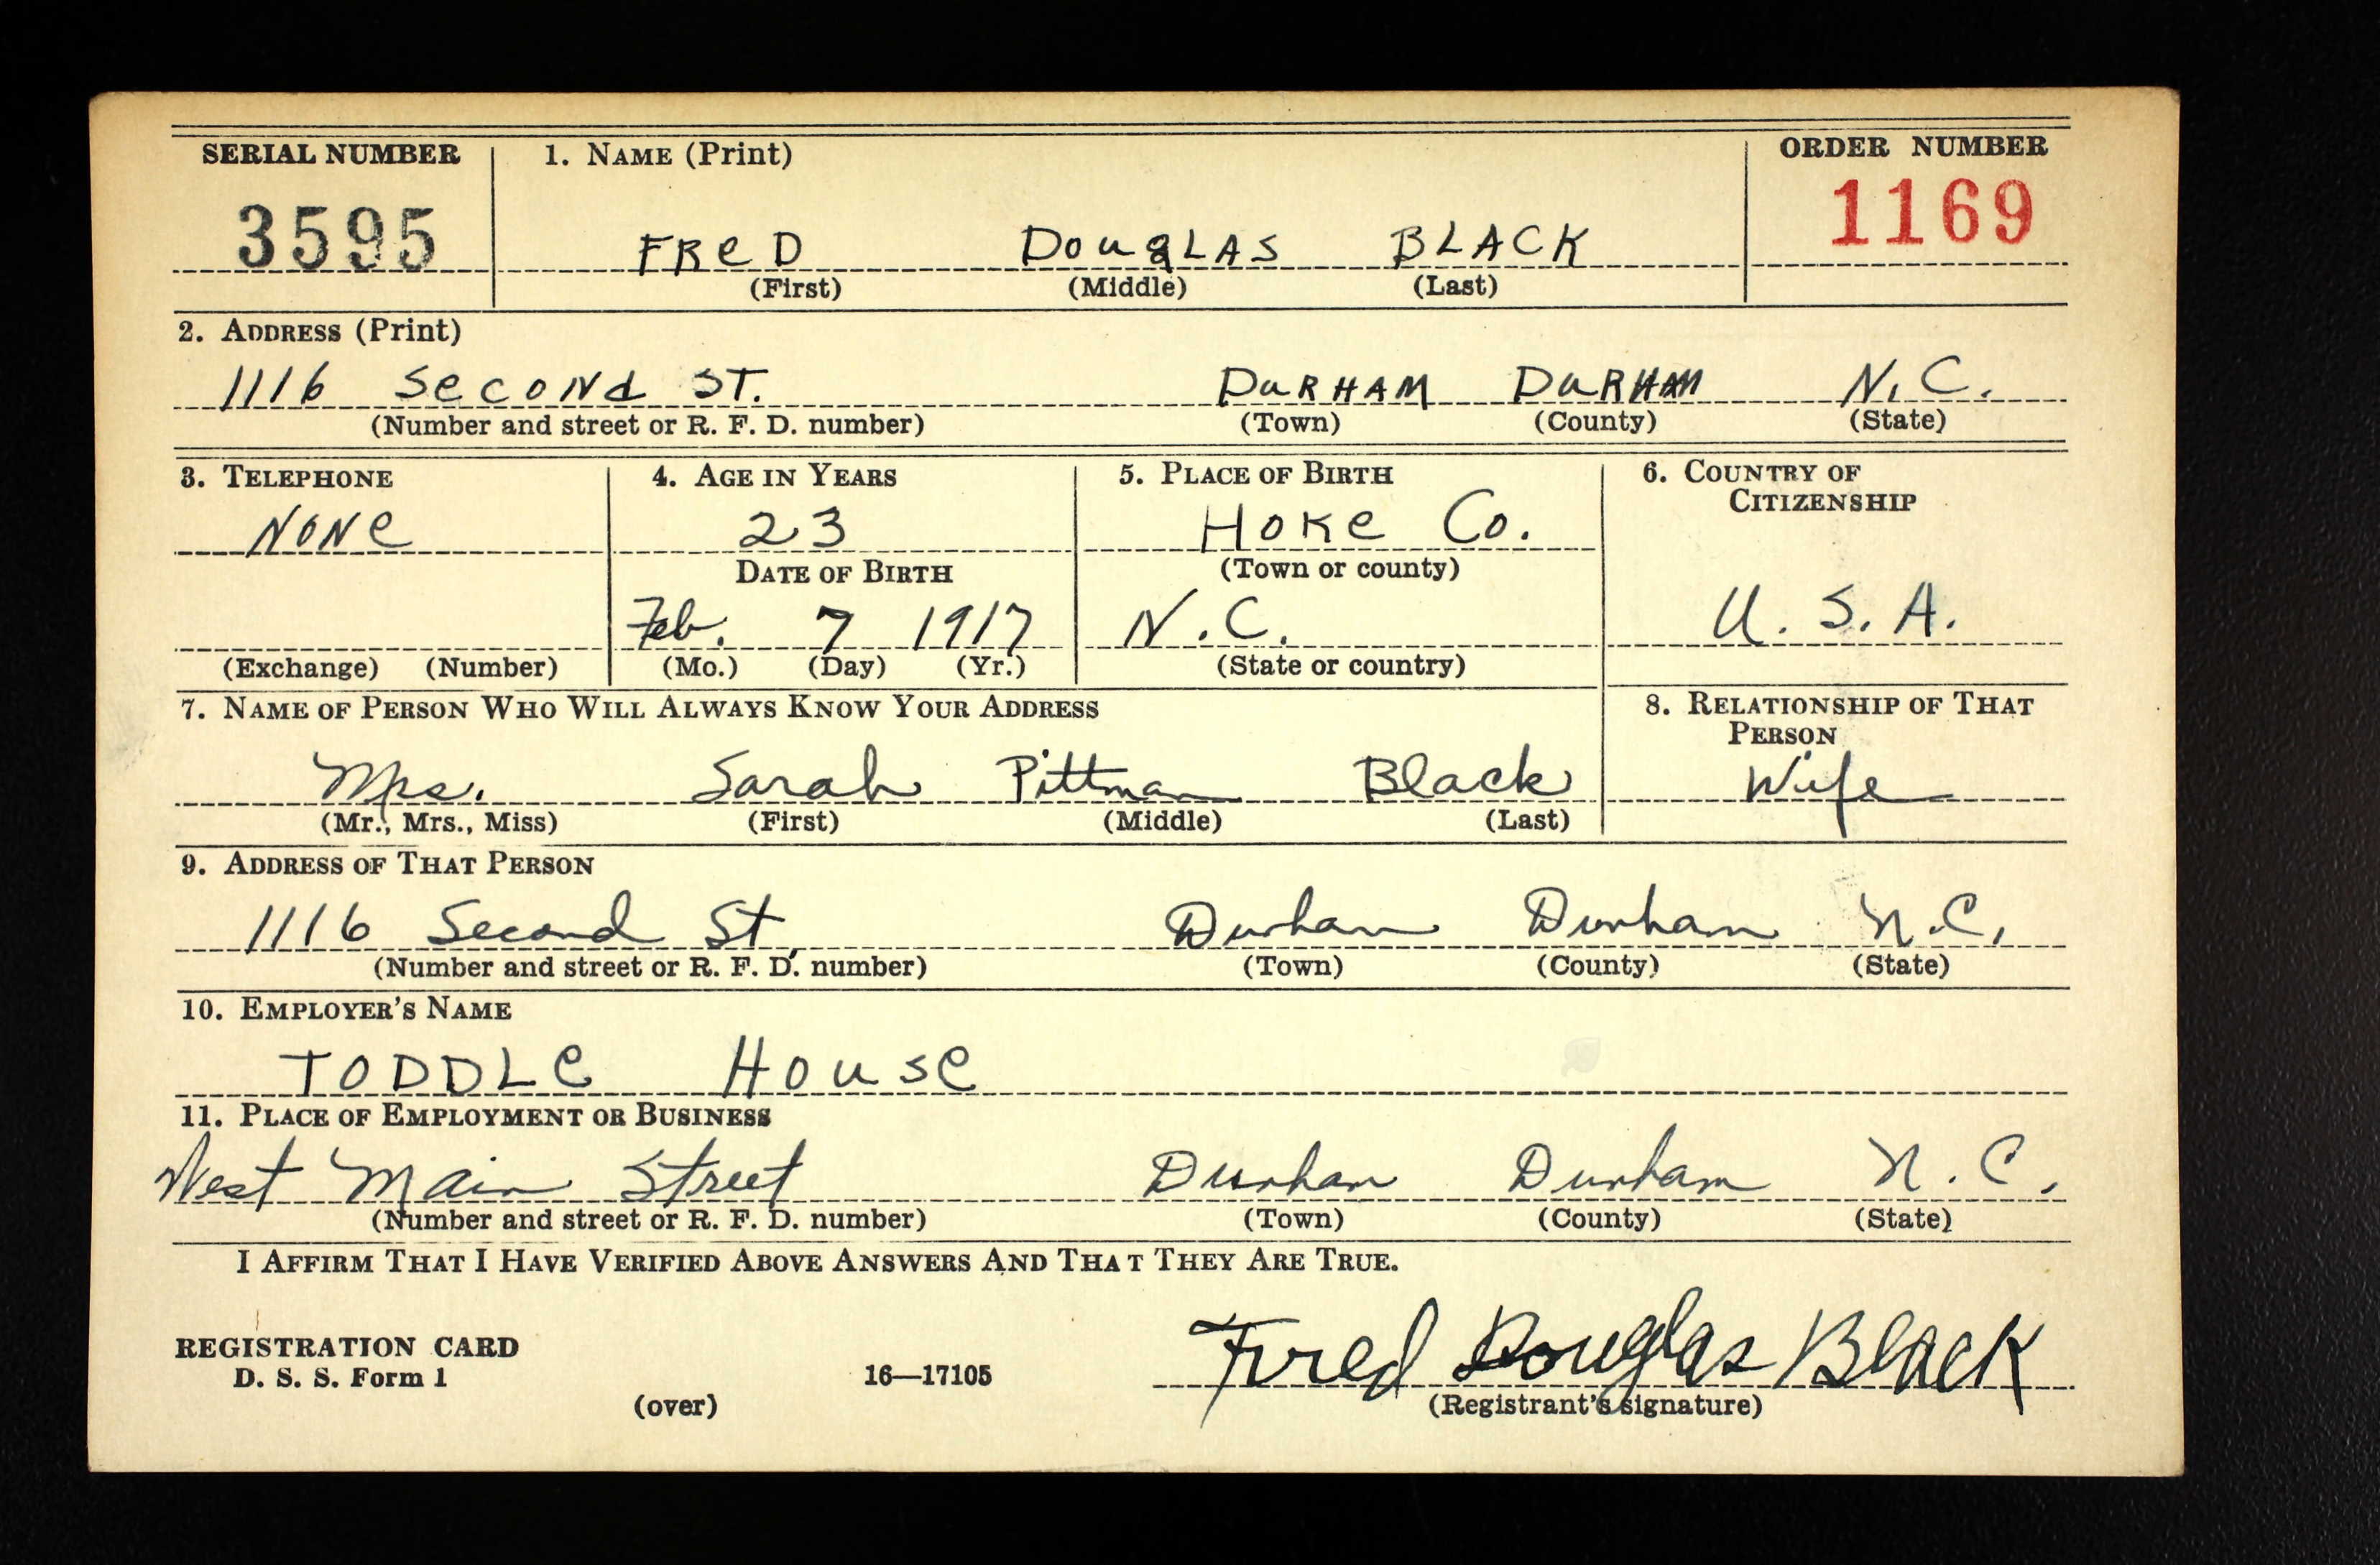 SERIAL NUMBER 1. NAME (Print) ORDER NUMBER
3595 FReD DouglAS BLACK 1169
(First) (Middle) (Last)
2. ADDRESS (Print)
1116 SecoNd ST. DuRHAM DuRHAM N.C.
(Number and street or R. F. D. number) (Town) (County) (State)
3. TELEPHONE 4. AGE IN YEARS 5. PLACE OF BIRTH 6. COUNTRY OF
CITIZENSHIP
NoNe 23 Hoke Co.
DATE OF BIRTH (Town or county)
Feb. 7 1917 N.C. U.S.A.
(Exchange) (Number) (Mo.) (Day) (Yr.) (State or country)
7. NAME OF PERSON WHO WILL ALWAYS KNOW YOUR ADDRESS 8. RELATIONSHIP OF THAT
PERSON
Mrs. Sarah Pittman Black Wife
(Mr., Mrs., Miss) (First) (Middle) (Last)
9. ADDRESS OF THAT PERSON
1116 Second St, Durham Durham N.C.
(Number and street or R. F. D. number) (Town) (County) (State)
10. EMPLOYER'S NAME
TODDLe House
11. PLACE OF EMPLOYMENT OR BUSINESS
West Main Street Durham Durham N.C.
(Number and street or R. F. D. number) (Town) (County) (State)
I AFFIRM THAT I HAVE VERIFIED ABOVE ANSWERS AND THAT THEY ARE TRUE.
REGISTRATION CARD
D. S. S. Form 1 16—17105 Fred Douglas Black
(over) (Registrant's signature)